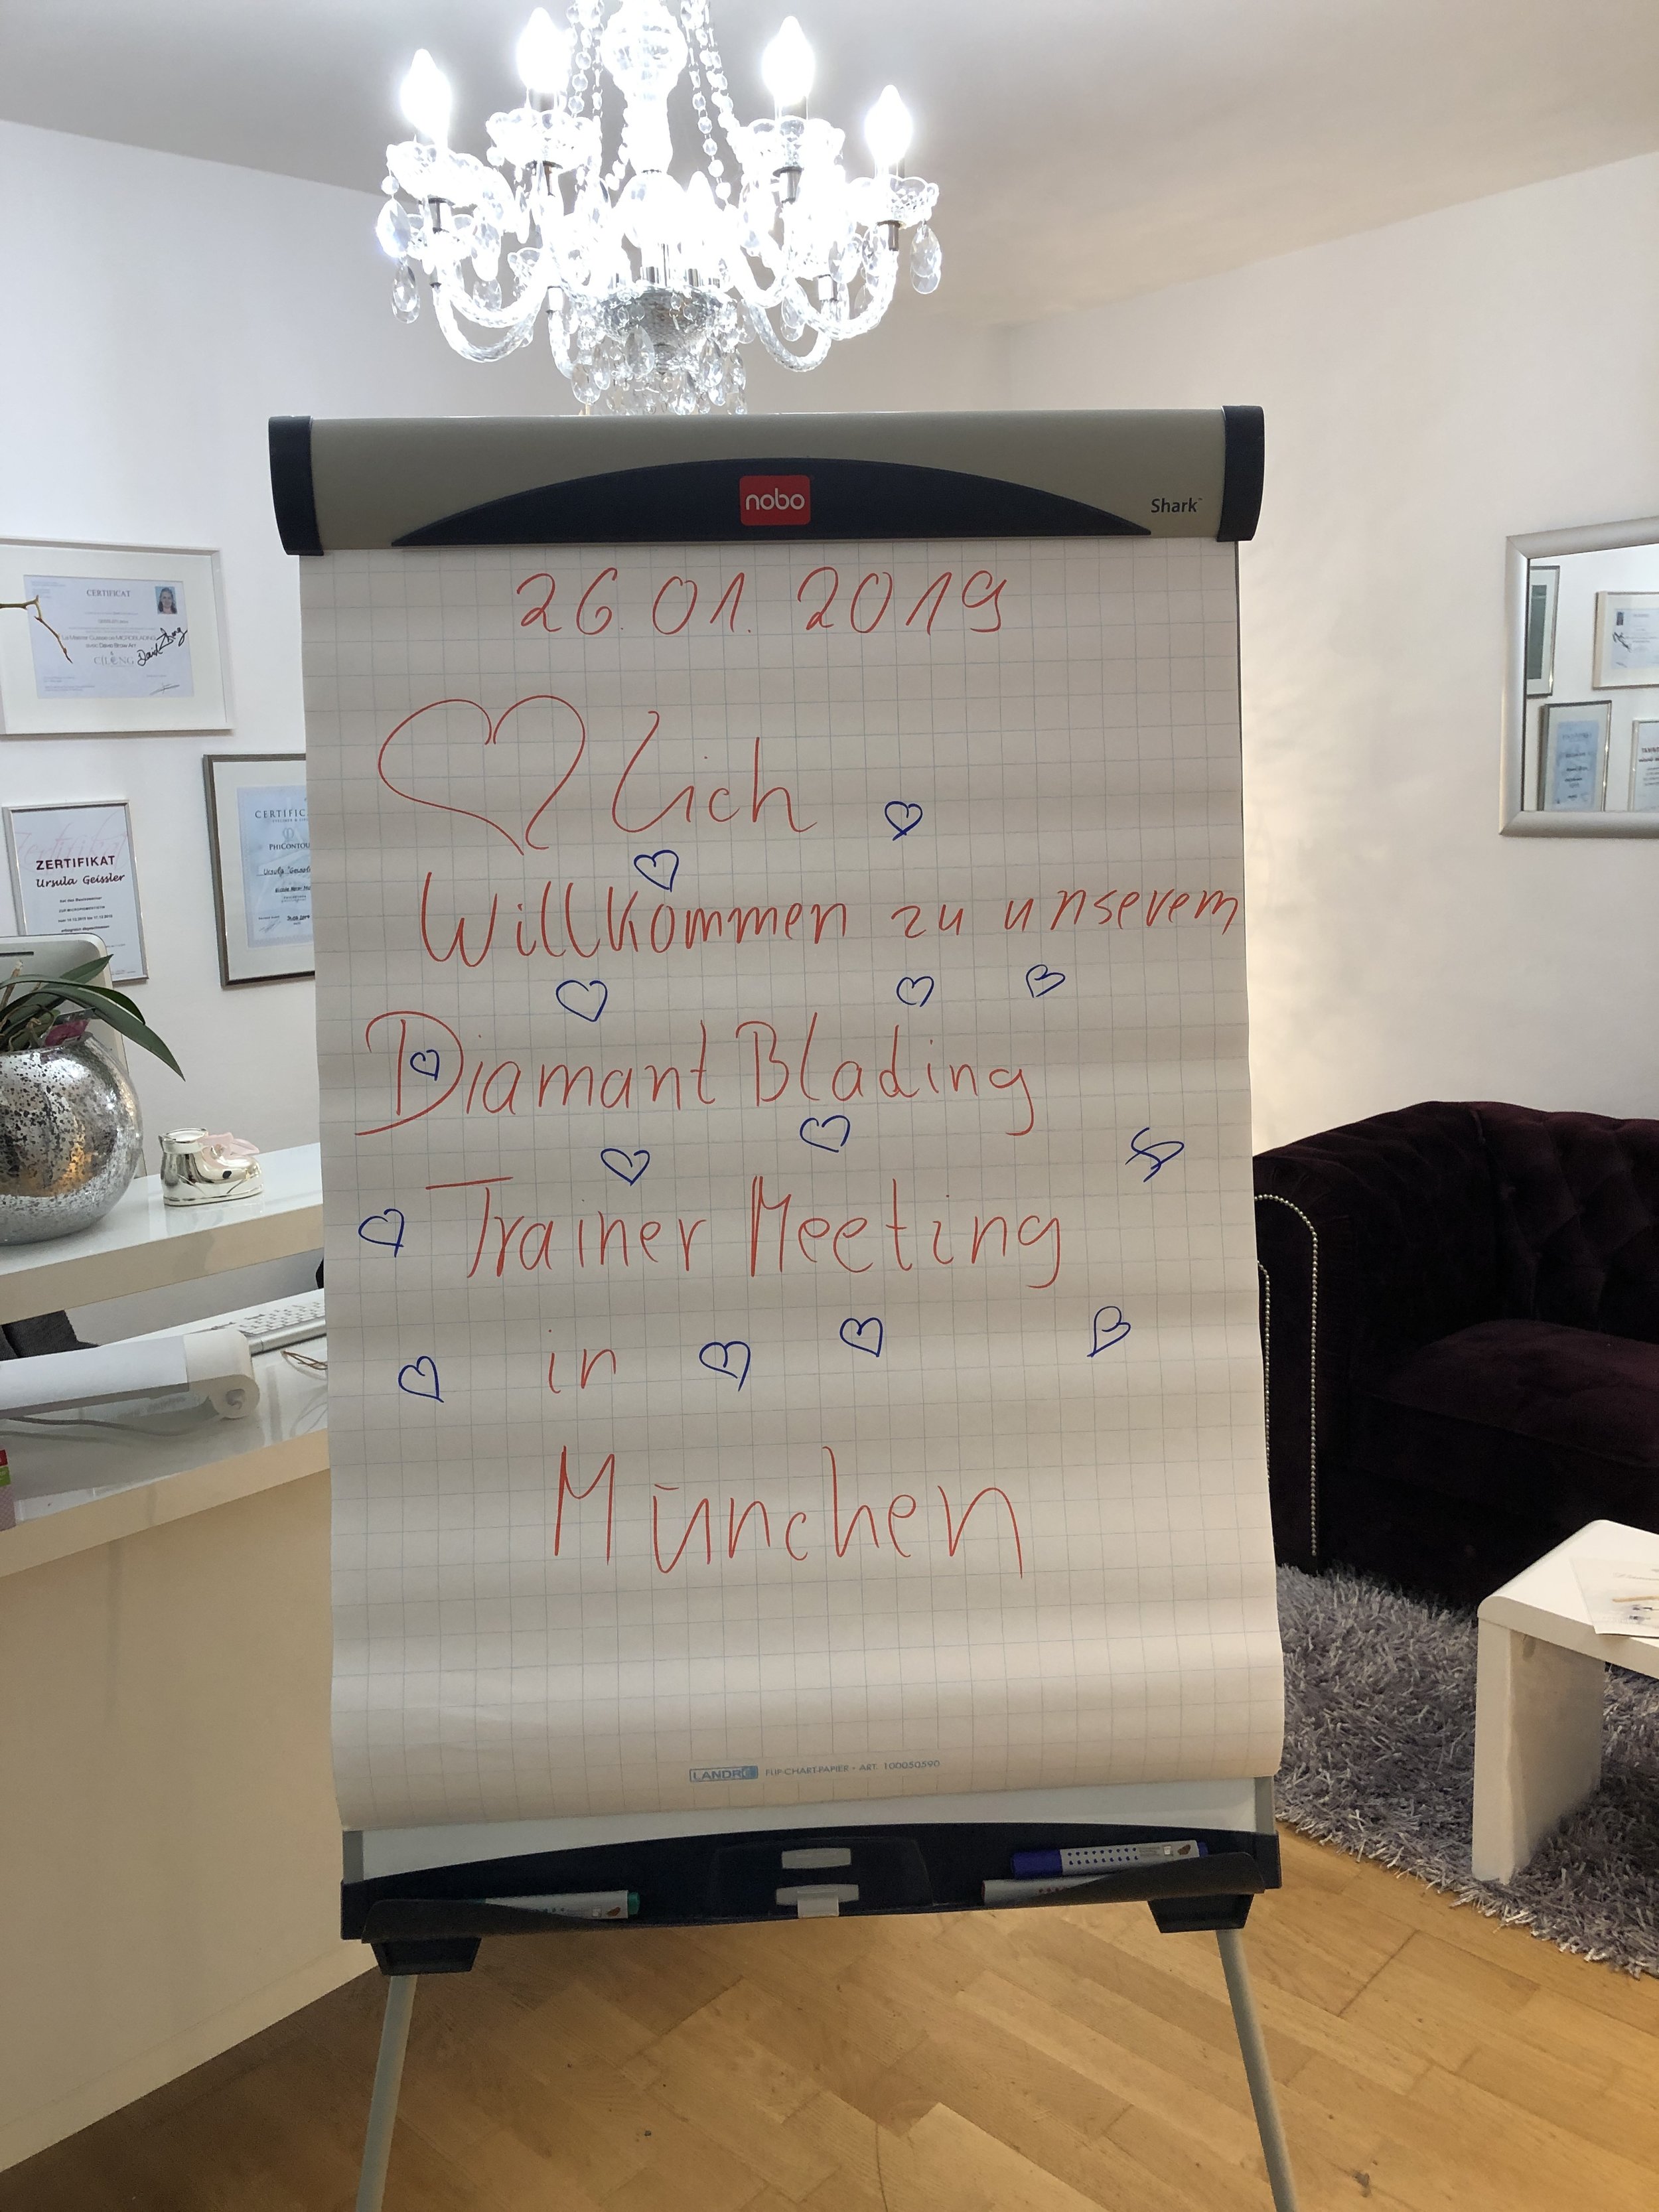 nobo
Shark™
26.01.2019
lich
Willkommen zu unserem
Diamant Blading
Trainer Meeting
in
München
LANDRÉ FLIP-CHART-PAPIER • ART. 100050590
CERTIFICAT
ZERTIFIKAT
Ursula Geissler
CERTIFIC
PHICONTOU